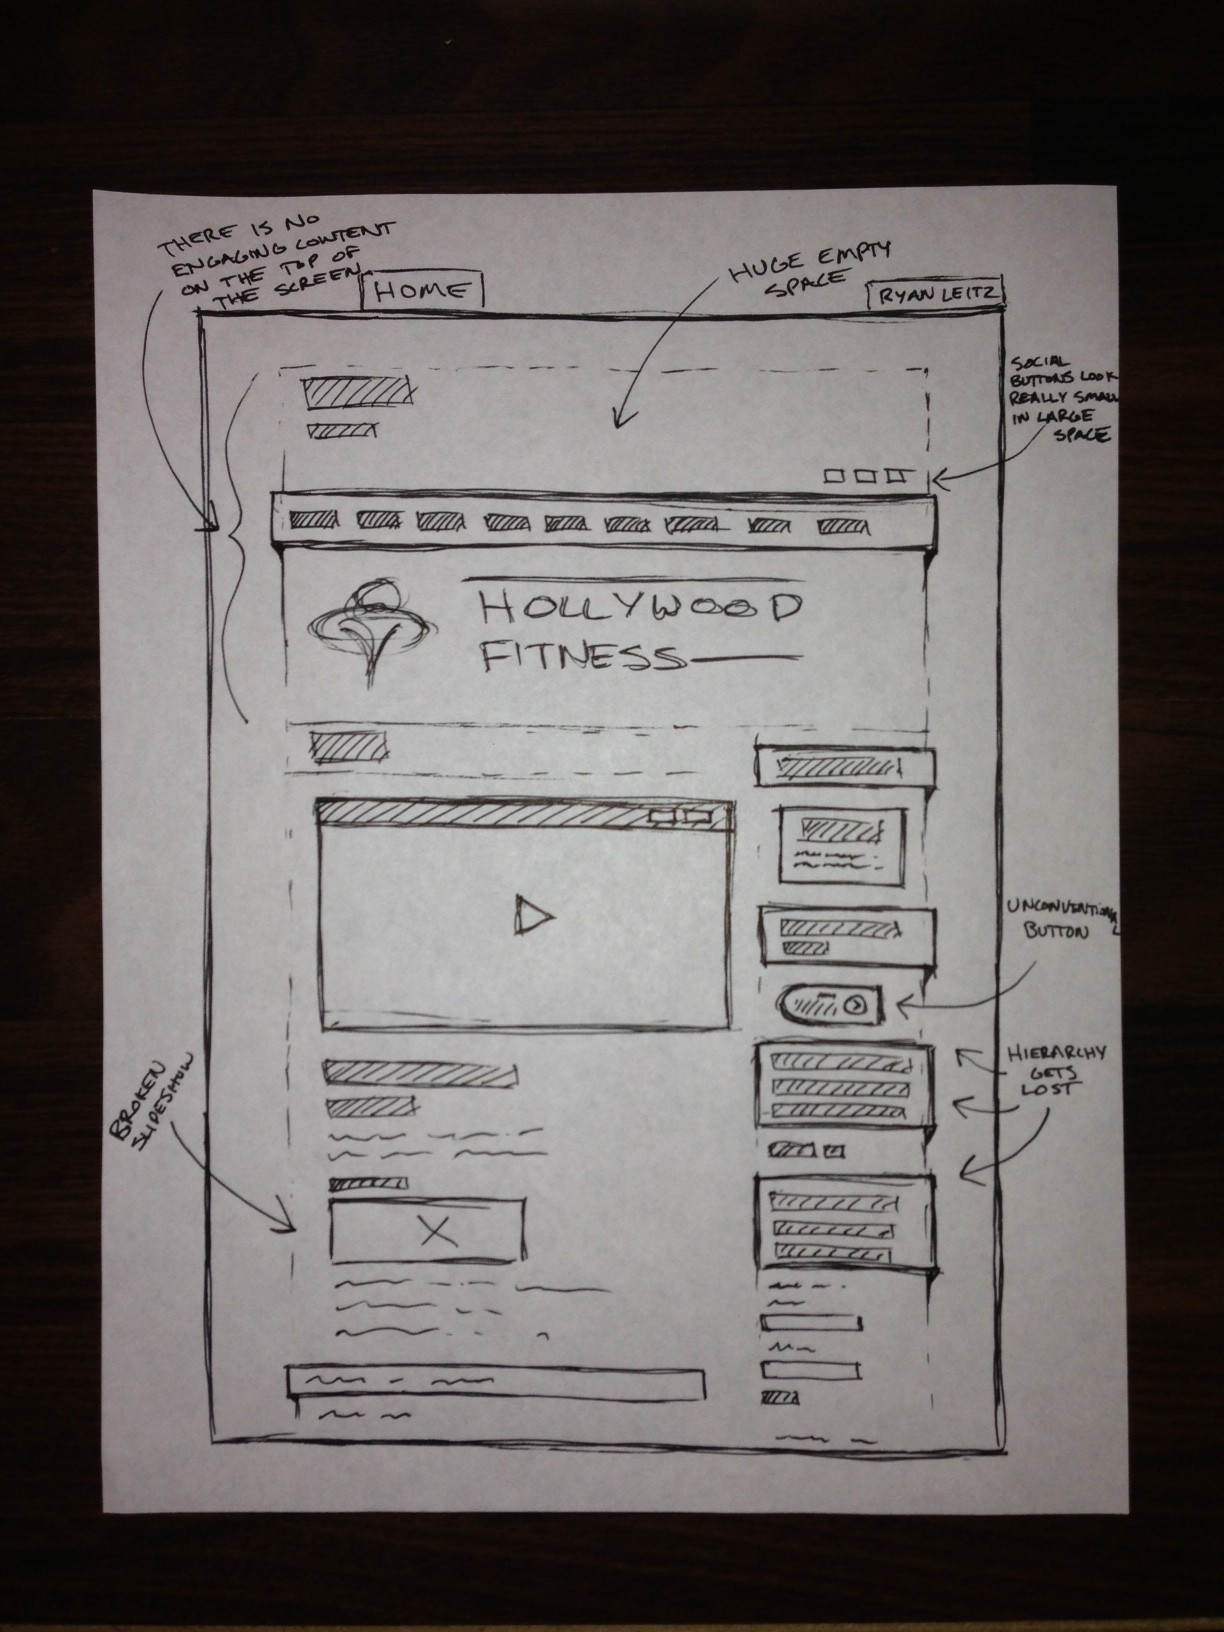 THERE IS NO
ENGAGING CONTENT
ON THE TOP OF
THE SCREEN
HOME
HUGE EMPTY
SPACE
RYAN LEITZ
SOCIAL
BUTTONS LOOK
REALLY SMALL
IN LARGE
SPACE
HOLLYWOOD
FITNESS
UNCONVENTIONAL
BUTTON
HIERARCHY
GETS
LOST
BROKEN
SLIDESHOW